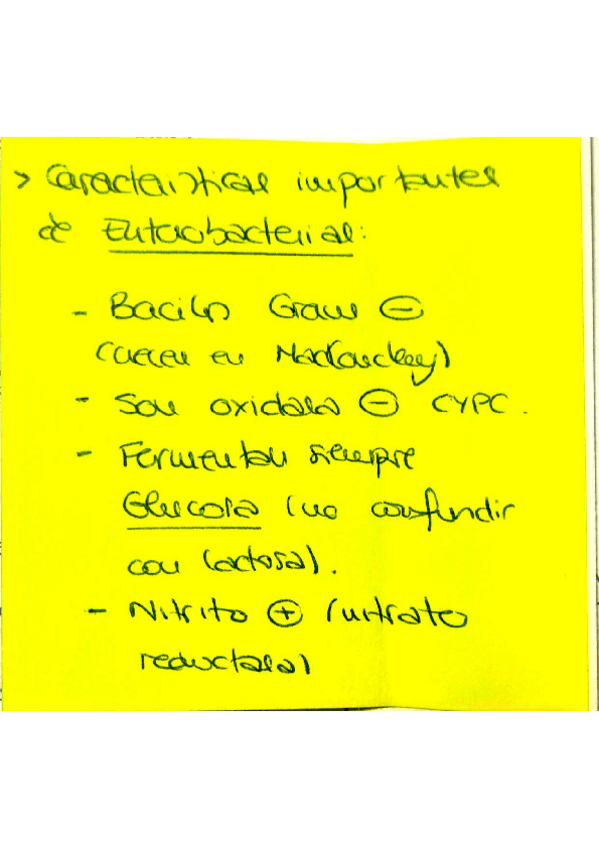 > Características importantes
de Enterobacterias:
- Bacilos Gram ⊖
(crecen en MacConckey)
- Son oxidasa ⊖ CYPC.
- Fermentan siempre
Glucosa (no confundir
con lactosa).
- Nitrito ⊕ (nitrato
reductasa)